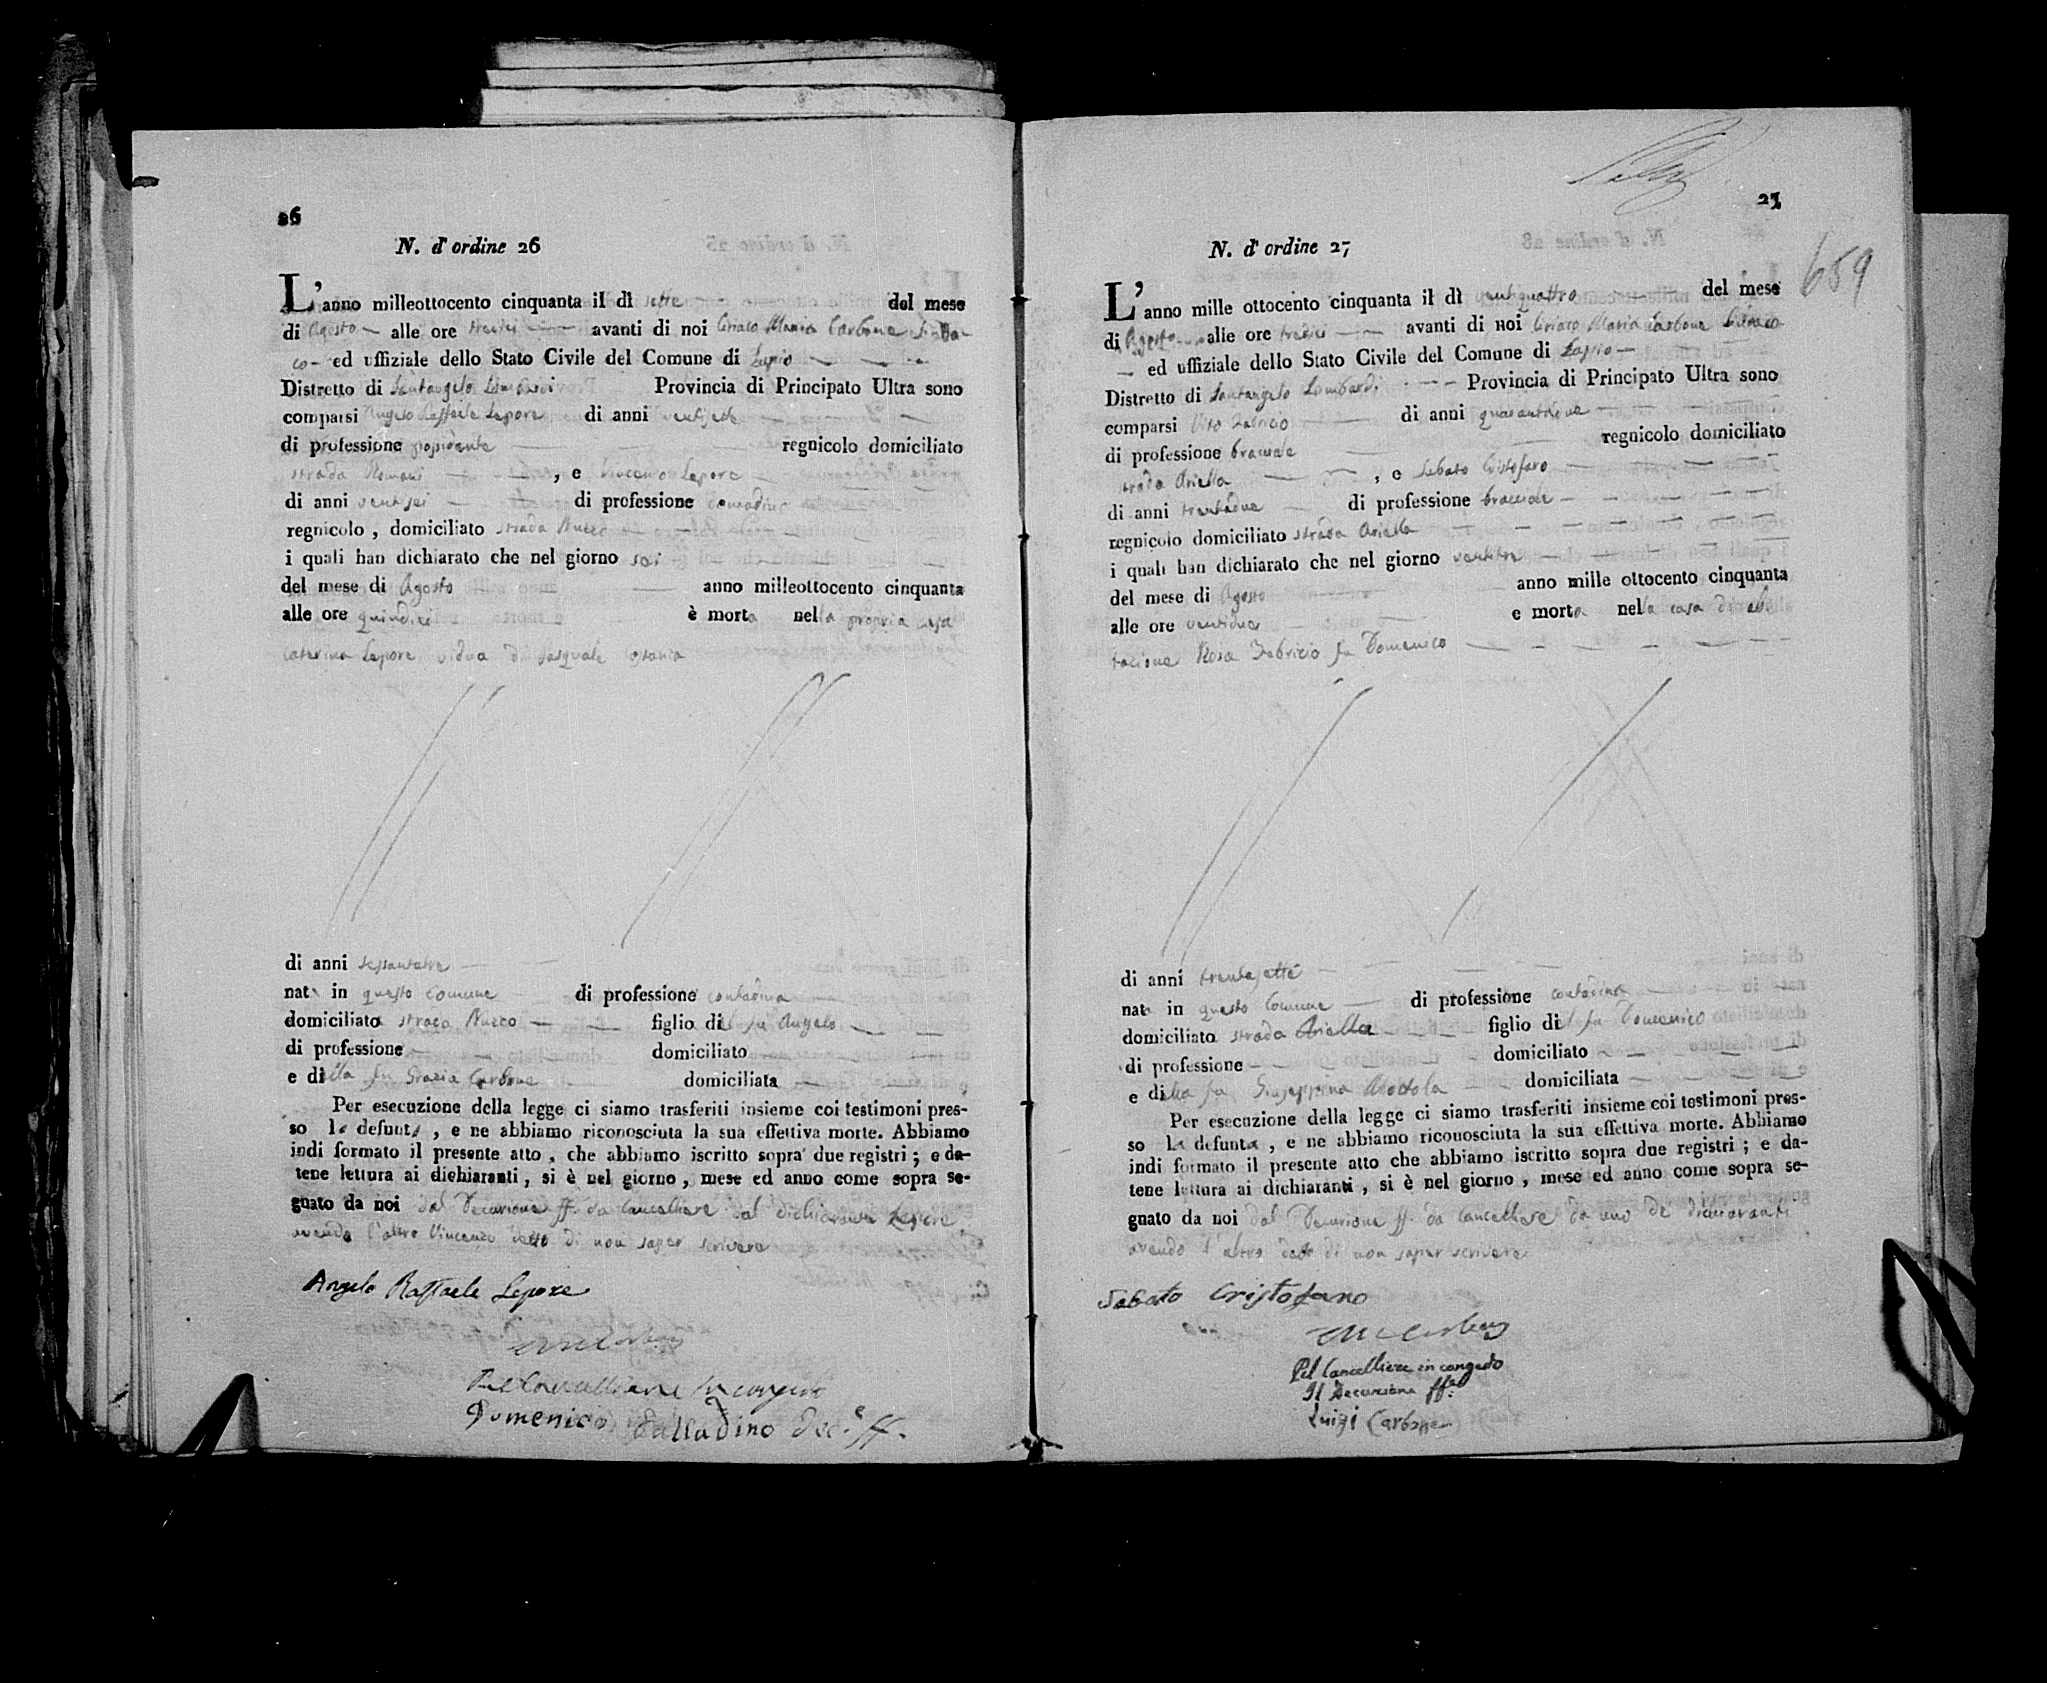 26
N. d'ordine 26
L'anno milleottocento cinquanta il dì sette del mese
di Agosto alle ore tredici avanti di noi Ciriaco Maria Carbone Sinda-
co ed uffiziale dello Stato Civile del Comune di Lapio
Distretto di Santangelo Lombardi Provincia di Principato Ultra sono
comparsi Angelo Raffaele Lepore di anni ventisette
di professione proprietario regnicolo domiciliato
strada Romani , e Vincenzo Lepore
di anni ventisei di professione contadino
regnicolo , domiciliato strada Nucco
i quali han dichiarato che nel giorno sei
del mese di Agosto anno milleottocento cinquanta
alle ore quindici è morta nella propria casa
Caterina Lepore vidua di Pasquale
di anni sessantatre
nata in questo Comune di professione contadina
domiciliata strada Nucco figlio del fu Angelo
di professione domiciliato
e della fu Grazia Carbone domiciliata
Per esecuzione della legge ci siamo trasferiti insieme coi testimoni pres-
so la defunta , e ne abbiamo riconosciuta la sua effettiva morte. Abbiamo
indi formato il presente atto , che abbiamo iscritto sopra due registri ; e da-
tene lettura ai dichiaranti , si è nel giorno , mese ed anno come sopra se-
gnato da noi dal Decurione ff. da Cancelliere dal dichiarante Lepore
avendo l'altro Vincenzo detto di non saper scrivere
Angelo Raffaele Lepore
Pel Cancelliere in congedo
Domenico Palladino Dec.e ff.
27
659
N. d'ordine 27
L'anno mille ottocento cinquanta il dì ventiquattro del mese
di Agosto alle ore tredici avanti di noi Ciriaco Maria Carbone Sindaco
ed uffiziale dello Stato Civile del Comune di Lapio
Distretto di Santangelo Lombardi Provincia di Principato Ultra sono
comparsi Vito Fabricio di anni quarantadue
di professione bracciale regnicolo domiciliato
strada Ariella , e Sabato Cristofaro
di anni trentadue di professione bracciale
regnicolo domiciliato strada Ariella
i quali han dichiarato che nel giorno ventitre
del mese di Agosto anno mille ottocento cinquanta
alle ore ventidue e morta nella casa di abi
tazione Rosa Fabricio fu Domenico
di anni trentasette
nata in questo Comune di professione contadina
domiciliata strada Ariella figlio del fu Domenico
di professione domiciliato
e della fu Giuseppina Mottola domiciliata
Per esecuzione della legge ci siamo trasferiti insieme coi testimoni pres-
so la defunta , e ne abbiamo riconosciuta la sua effettiva morte. Abbiamo
indi formato il presente atto che abbiamo iscritto sopra due registri ; e da-
tene lettura ai dichiaranti , si è nel giorno , mese ed anno come sopra se-
gnato da noi dal Decurione ff. da Cancelliere da uno de' dichiaranti
avendo l'altro detto di non saper scrivere
Sabato Cristofano
Pel Cancelliere in congedo
Il Decurione ff.
Luigi Carbone